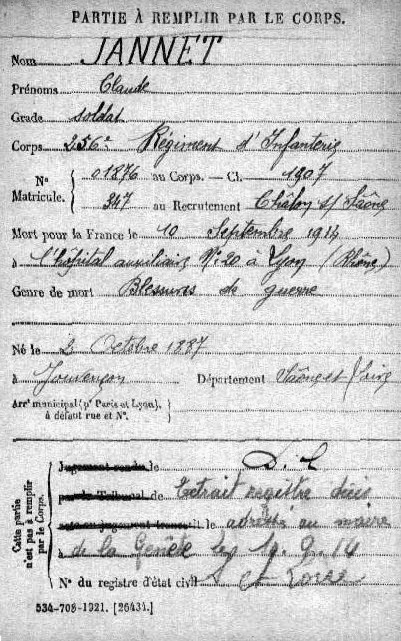 PARTIE À REMPLIR PAR LE CORPS.
Nom JANNET
Prénoms Claude
Grade soldat
Corps 256e Régiment d'Infanterie
N° 01876 au Corps. — Cl. 1907
Matricule. 347 au Recrutement Châlon s/ Saône
Mort pour la France le 10 Septembre 1914
à l'hôpital auxiliaire N° 20 à Lyon (Rhône)
Genre de mort Blessures de guerre
Né le 2 Octobre 1887
à Jouvençon Département Saône et Loire
Arr' municipal (p' Paris et Lyon),
à défaut rue et N°.
Cette partie
n'est pas à remplir
par le Corps.
Jugement rendu le
par le Tribunal de Extrait registre décès
acte ou jugement transcrit le adressé au maire
à de la Genête le
N° du registre d'état civil
534-708-1921. [26434.]